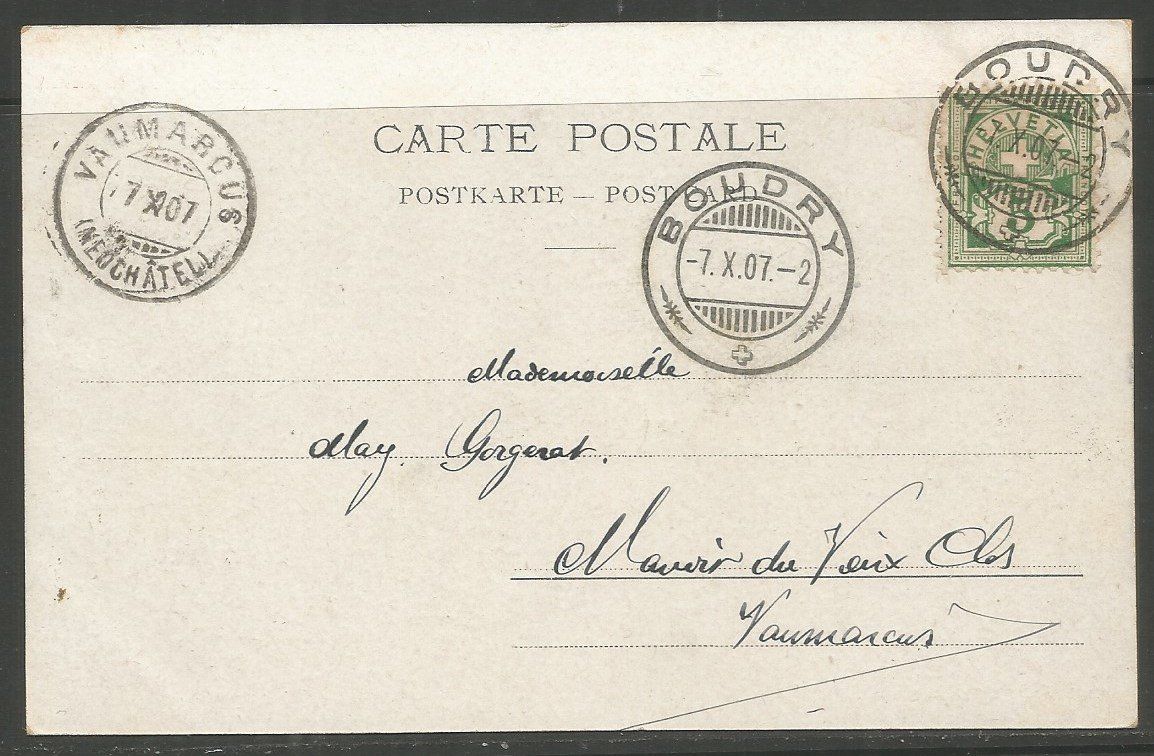 CARTE POSTALE
POSTKARTE — POST CARD
VAUMARCUS
7 X 07
(NEUCHÂTEL)
BOUDRY
-7.X.07.-2
BOUDRY
X.07
HELVETIA
5
Mademoiselle
May. Gorgerat.
Manoir du Veix Clos
Vaumarcus